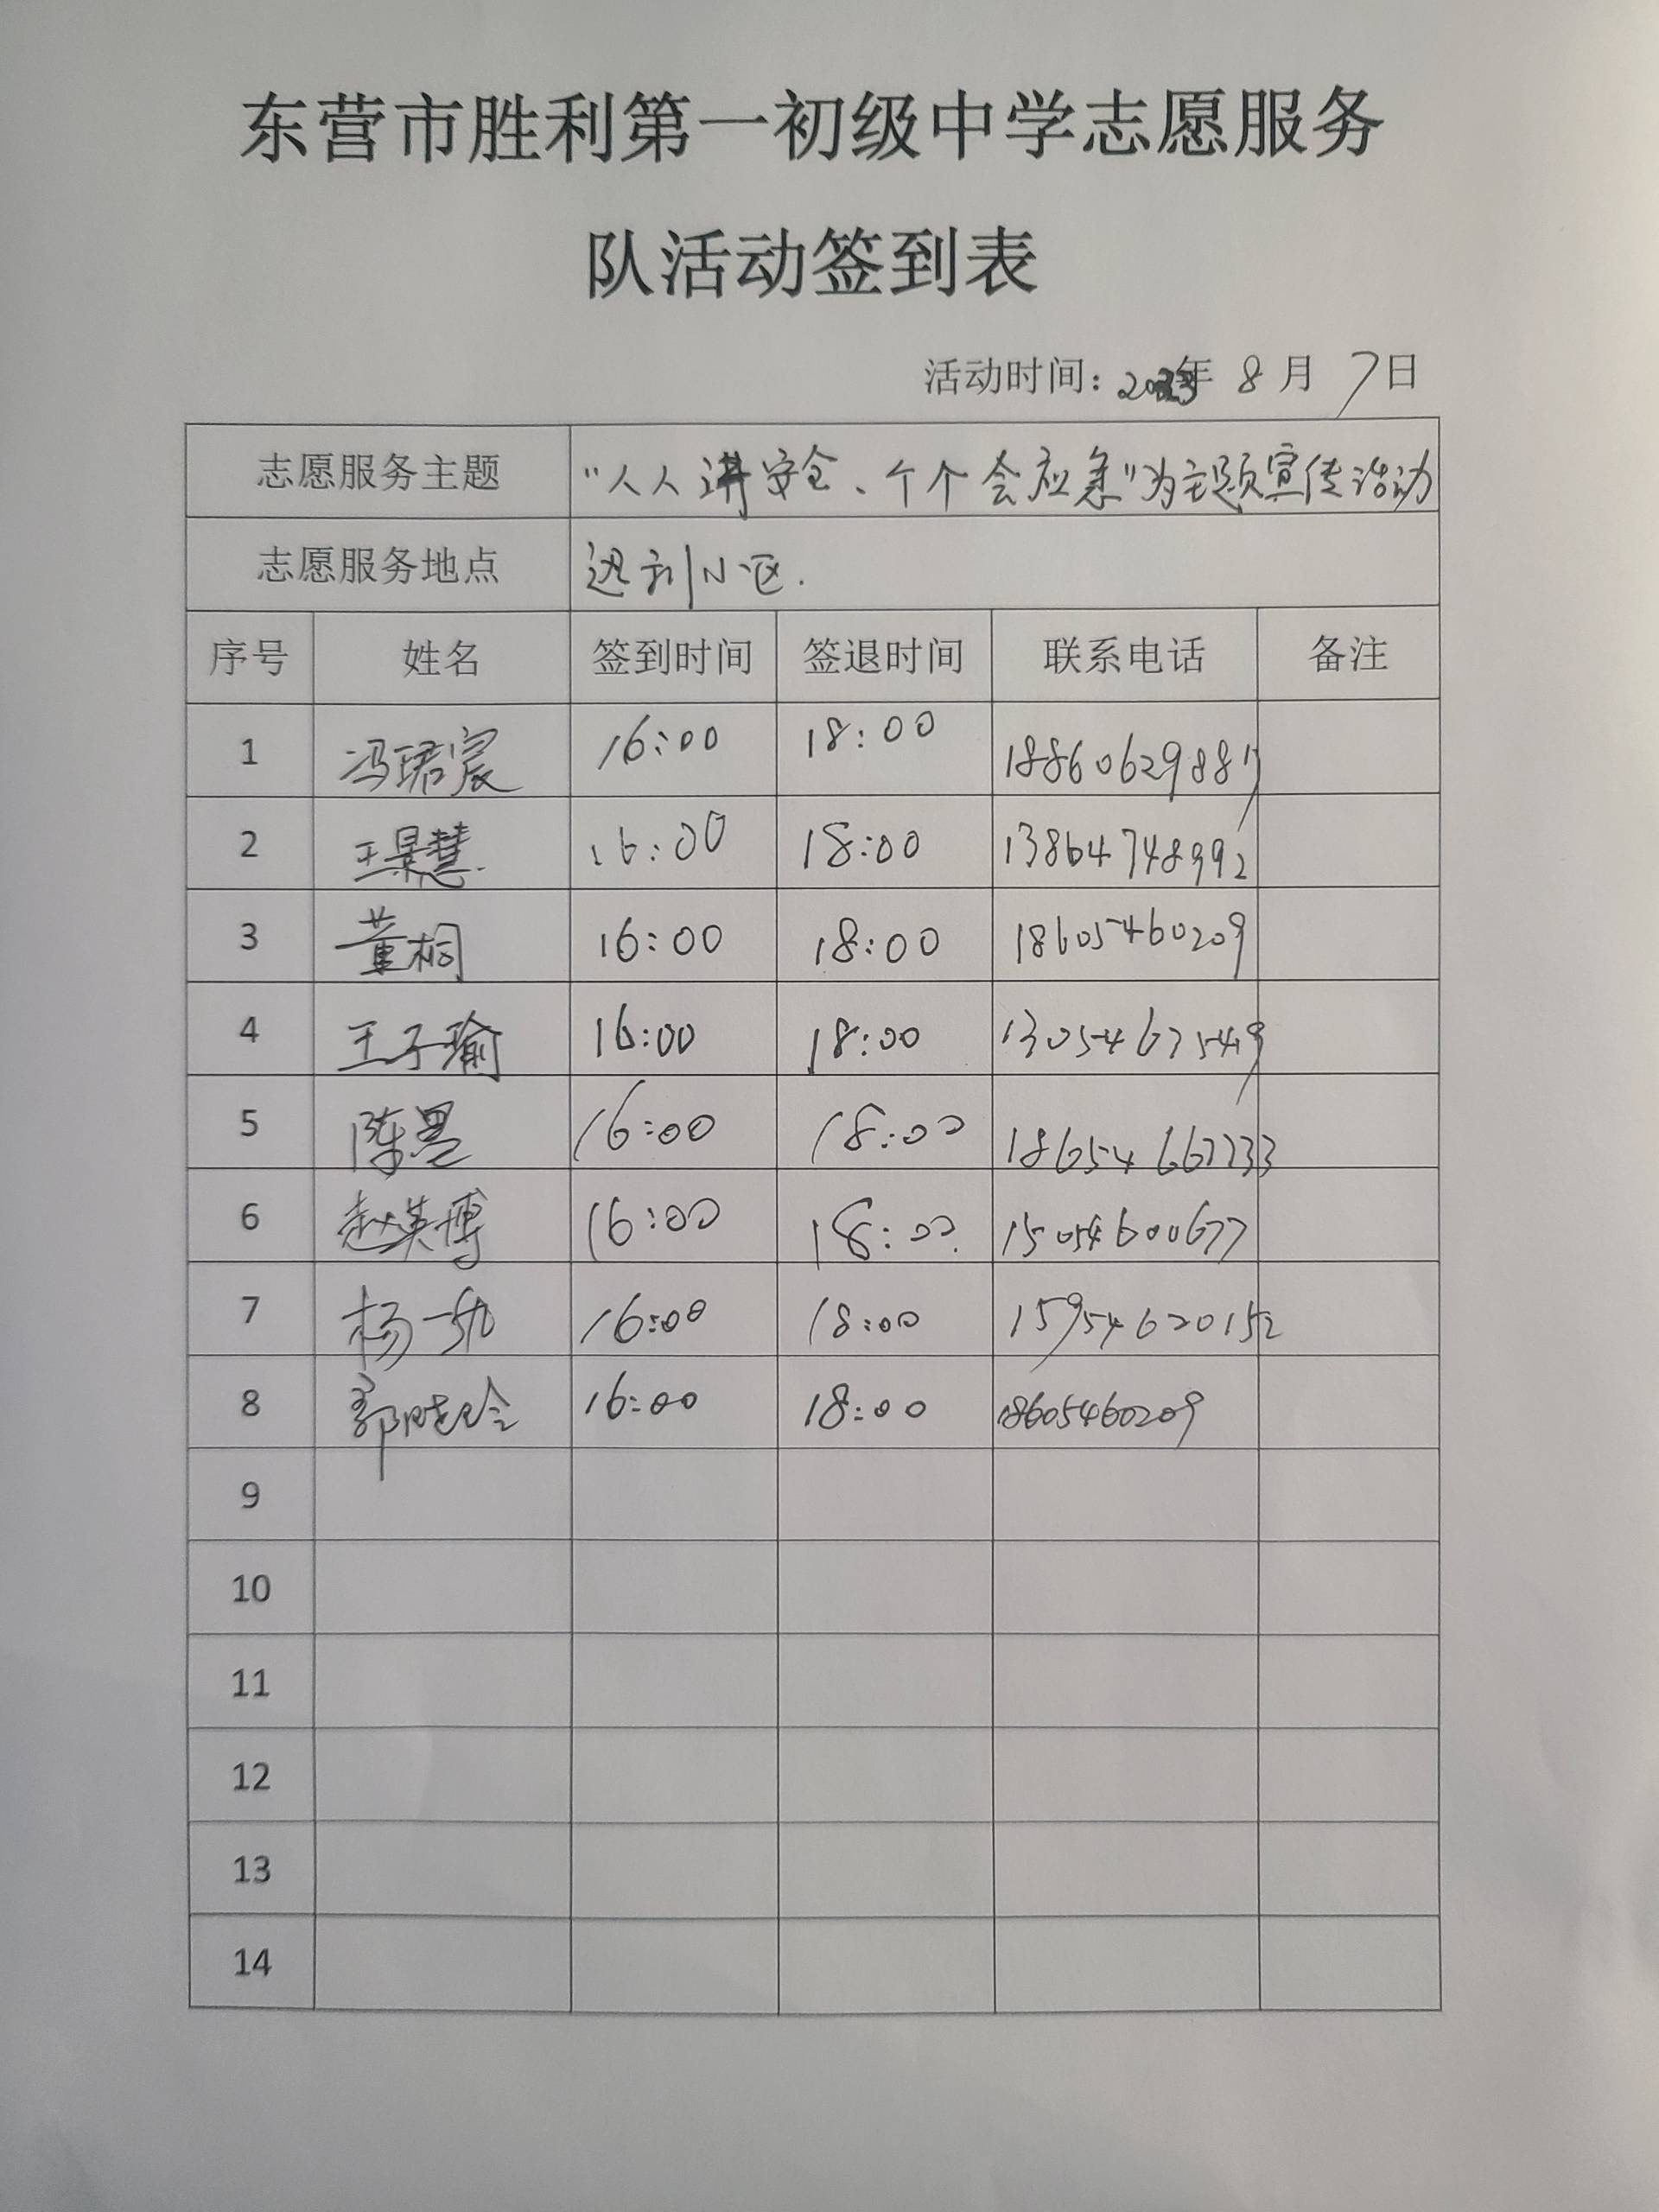 东营市胜利第一初级中学志愿服务
队活动签到表
活动时间：2023年 8 月 7日
志愿服务主题 “人人讲安全、个个会应急”为主题宣传活动
志愿服务地点 达利小区.
序号 姓名 签到时间 签退时间 联系电话 备注
1 冯珺宸 16:00 18:00 18860629887
2 王景慧 16:00 18:00 13864748992
3 董桐 16:00 18:00 18605460209
4 王子瑜 16:00 18:00
5 陈昱 16:00 18:00
6 赵英博 16:00 18:00 15054600677
7 杨一帆 16:00 18:00 15954620152
8 郭晓玲 16:00 18:00 18605460209
9
10
11
12
13
14